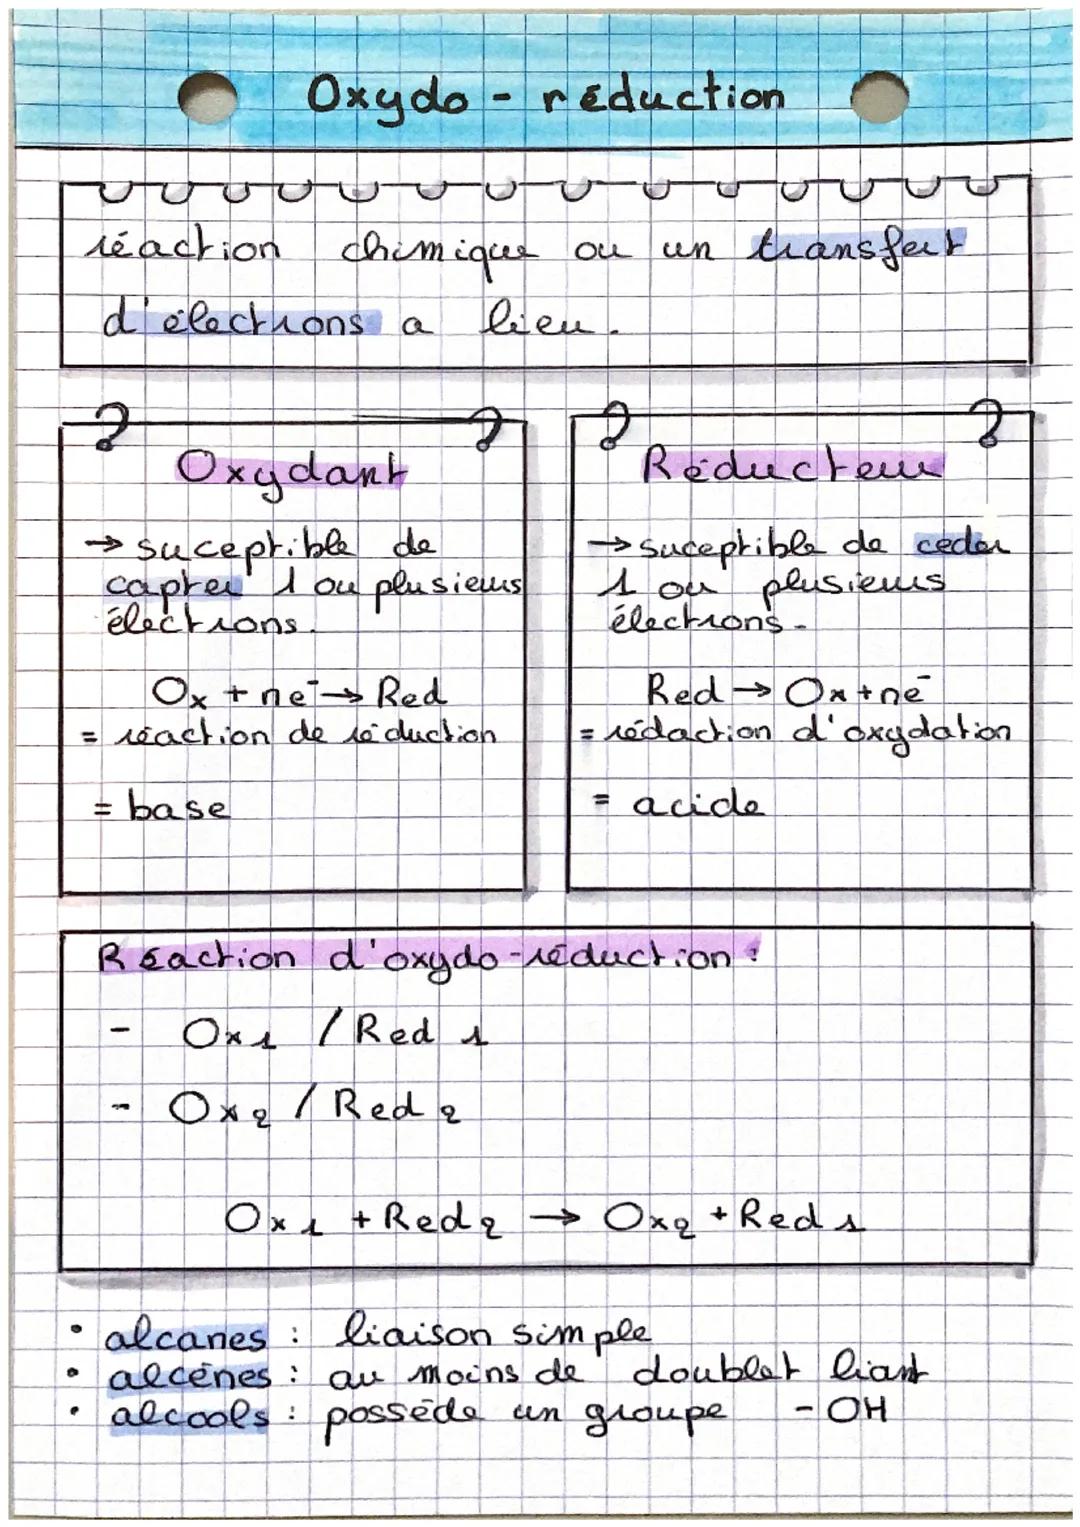 Oxydo - réduction
réaction chimique ou un transfert
d'électrons a lieu.
Oxydant
→ suceptible de
capter 1 ou plusieurs
électrons.
Ox + ne⁻ → Red
= réaction de réduction
= base
Réducteur
→ suceptible de céder
1 ou plusieurs
électrons.
Red → Ox + ne⁻
= rédaction d'oxydation
= acide
Réaction d'oxydo-réduction :
- Ox₁ / Red₁
- Ox₂ / Red₂
Ox₁ + Red₂ → Ox₂ + Red₁
• alcanes : liaison simple
• alcénes : au moins de doublet liant
• alcools : posséde un groupe - OH